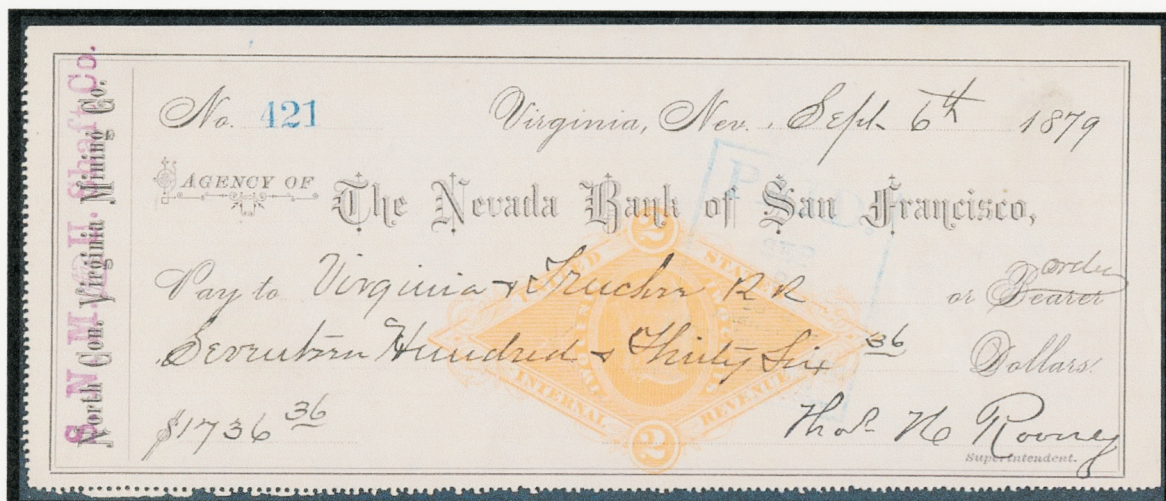 North Con. Virginia Mining Co.
No. 421
Virginia, Nev. Sept 6th 1879
AGENCY OF The Nevada Bank of San Francisco,
Pay to Virginia & Truckee R R or Bearer order
Seventeen Hundred & Thirty Six 36 Dollars.
$1736 36
Thos H Rooney
Superintendent.
2
UNITED STATES
INTERNAL REVENUE
2